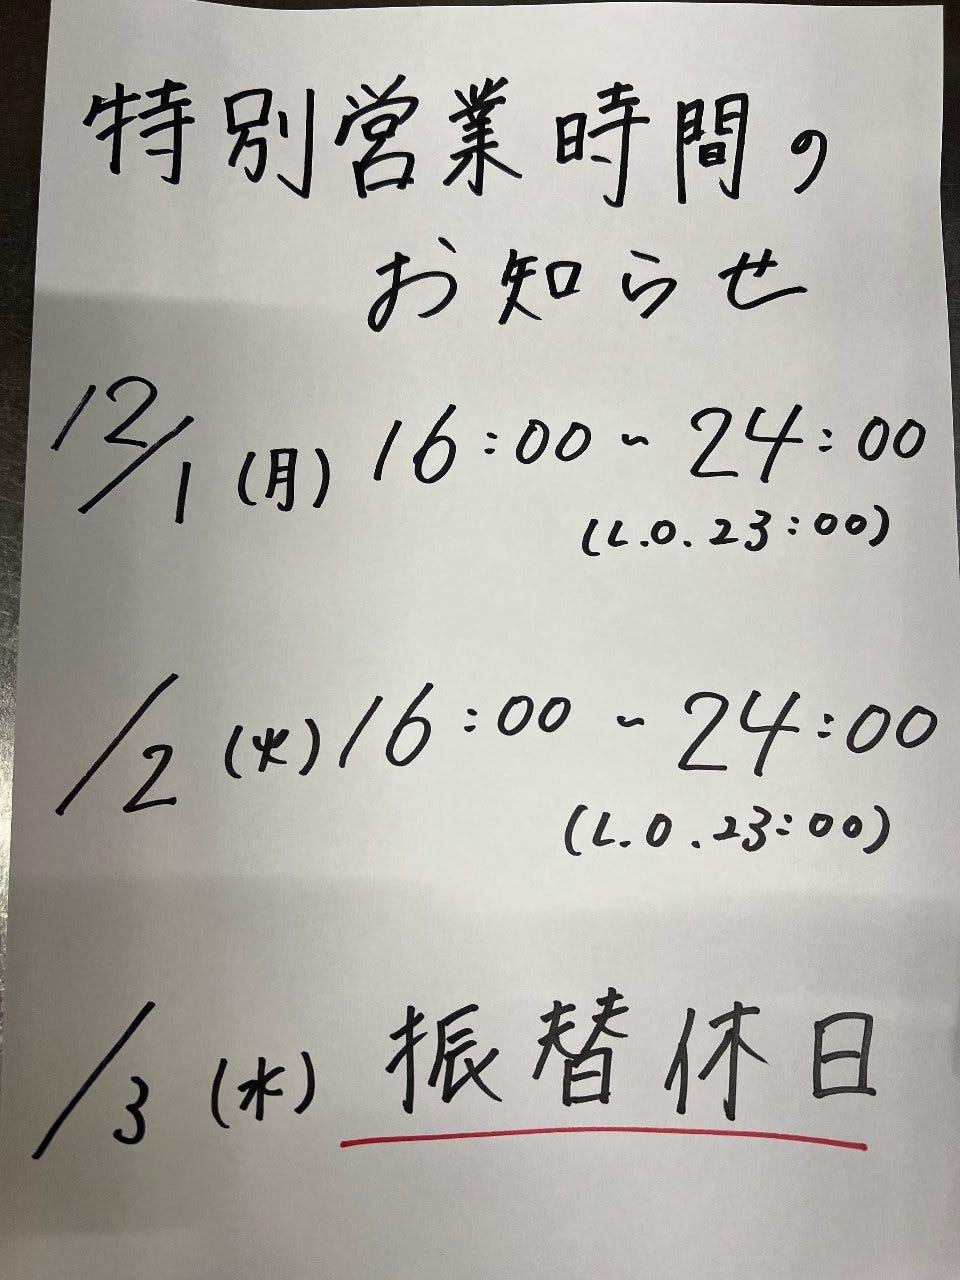 特別営業時間の
お知らせ
12/1(月) 16:00~24:00
(L.O.23:00)
/2(火)16:00~24:00
(L.O.23:00)
/3(水) 振替休日